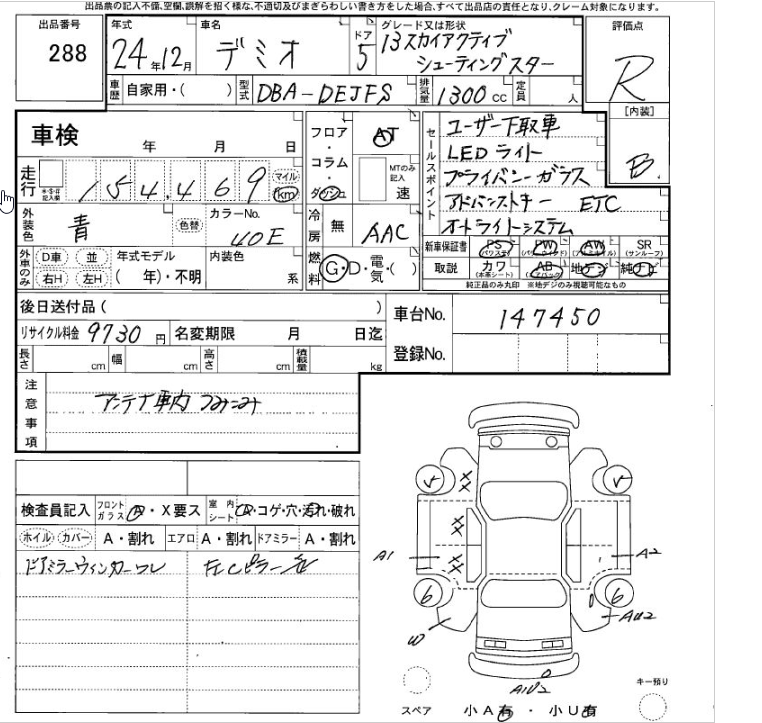 出品票の記入不備、空欄、誤解を招く様な、不適切及びまぎらわしい書き方をした場合、すべて出品店の責任となり、クレーム対象になります。
出品番号
288
年式
24年12月
車名
デミオ
ドア
5
グレード又は形状
13スカイアクティブ
シューティングスター
評価点
R
車歴
自家用・( )
型式
DBA-DEJFS
排気量
1300 cc
定員
人
[内装]
B
車検
年 月 日
走行
154,469
マイル
km
フロア
・
コラム
・
ダッシュ
AT
MTのみ記入
速
セールスポイント
ユーザー下取車
LEDライト
プライバシーガラス
アドバンストキー ETC
オートライトシステム
外装色
青
色替
カラーNo.
40E
冷房
無
AAC
新車保証書
PS
(パワステ)
PW
AW
SR
(サンルーフ)
取説
カワ
(本革シート)
AB
(エアバック)
地デジ
純ナビ
純正品のみ丸印 ※地デジのみ視聴可能なもの
外車のみ
D車
並
右H
左H
年式モデル
( 年)・不明
内装色
系
燃料
G・D・電気・( )
後日送付品 ( )
リサイクル料金 9730 円
名変期限 月 日迄
車台No.
147450
長さ cm
幅 cm
高さ cm
積載量 kg
登録No.
注意事項
アンテナ車内つみこみ
検査員記入
フロントガラス
A・X要ス
室内シート
・コゲ・穴・汚れ・破れ
ホイル
カバー
A・割れ
エアロ
A・割れ
ドアミラー
A・割れ
ドアミラーウィンカーワレ
左Cピラー
A1
A2
AU2
W
A1U2
5
5
6
6
スペア
小A有・小U有
キー預り